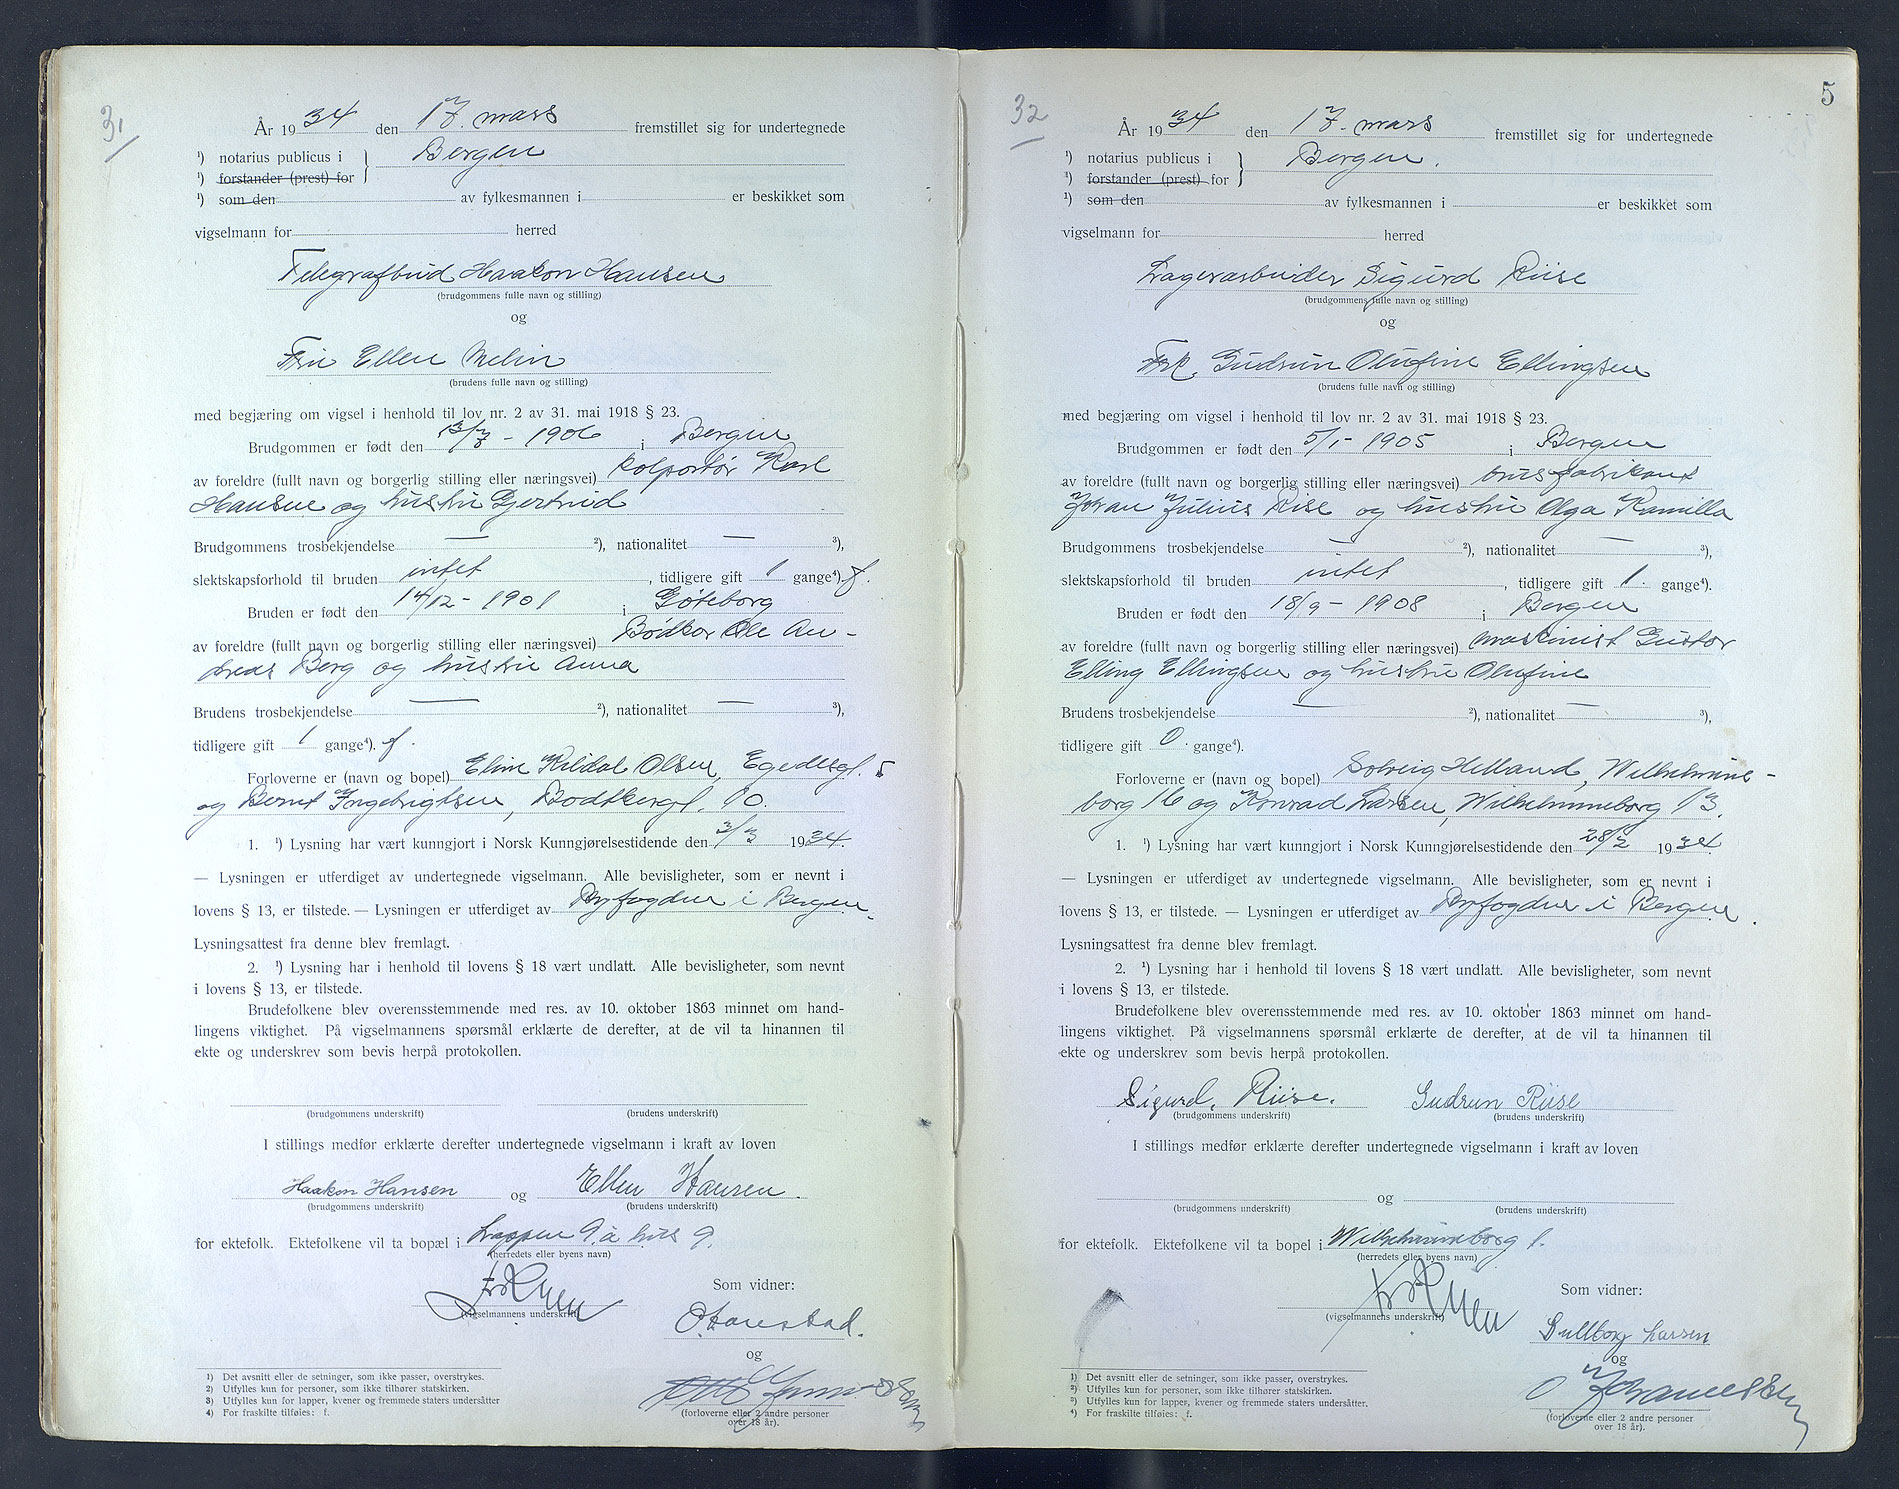 31
År 1934 den 17. mars fremstillet sig for undertegnede
¹) notarius publicus i } Bergen
¹) forstander (prest) for
¹) som den av fylkesmannen i er beskikket som
vigselmann for herred
Telegrafbud Haakon Hansen
(brudgommens fulle navn og stilling)
og
Fru Ellen Melin
(brudens fulle navn og stilling)
med begjæring om vigsel i henhold til lov nr. 2 av 31. mai 1918 § 23.
Brudgommen er født den 13/7 - 1906 i Bergen
av foreldre (fullt navn og borgerlig stilling eller næringsvei) kolportør Karl
Hansen og hustru Gjertrud
Brudgommens trosbekjendelse — ²), nationalitet — ³),
slektskapsforhold til bruden intet, tidligere gift 1 gange⁴). f.
Bruden er født den 14/12 - 1901 i Gøteborg
av foreldre (fullt navn og borgerlig stilling eller næringsvei) Bødker Ole An-
dreas Berg og hustru Anna
Brudens trosbekjendelse — ²), nationalitet — ³),
tidligere gift 1 gange⁴). f.
Forloverne er (navn og bopel) Kildal Olsen, Egedesgt. 5
og Bernt Ingebrigtsen, Bødkergt. 10.
1. ¹) Lysning har vært kunngjort i Norsk Kunngjørelsestidende den 3/3 1934.
— Lysningen er utferdiget av undertegnede vigselmann. Alle bevisligheter, som er nevnt i
lovens § 13, er tilstede. — Lysningen er utferdiget av Byfogden i Bergen.
Lysningsattest fra denne blev fremlagt.
2. ¹) Lysning har i henhold til lovens § 18 vært undlatt. Alle bevisligheter, som nevnt
i lovens § 13, er tilstede.
Brudefolkene blev overensstemmende med res. av 10. oktober 1863 minnet om hand-
lingens viktighet. På vigselmannens spørsmål erklærte de derefter, at de vil ta hinannen til
ekte og underskrev som bevis herpå protokollen.
(brudgommens underskrift) (brudens underskrift)
I stillings medfør erklærte derefter undertegnede vigselmann i kraft av loven
Haakon Hansen og Ellen Hansen.
(brudgommens underskrift) (brudens underskrift)
for ektefolk. Ektefolkene vil ta bopæl i Lappen 9.a hus 9.
(herredets eller byens navn)
Som vidner:
(vigselmannens underskrift)
og
(forloverne eller 2 andre personer
over 18 år).
1) Det avsnitt eller de setninger, som ikke passer, overstrykes.
2) Utfylles kun for personer, som ikke tilhører statskirken.
3) Utfylles kun for lapper, kvener og fremmede staters undersåtter
4) For fraskilte tilføies: f.
5
32
År 1934 den 17. mars fremstillet sig for undertegnede
¹) notarius publicus i } Bergen.
¹) forstander (prest) for
¹) som den av fylkesmannen i er beskikket som
vigselmann for herred
Lagerarbeider Sigurd Riise
(brudgommens fulle navn og stilling)
og
Frk. Gudrun Olufine Ellingsen
(brudens fulle navn og stilling)
med begjæring om vigsel i henhold til lov nr. 2 av 31. mai 1918 § 23.
Brudgommen er født den 5/1 - 1905 i Bergen
av foreldre (fullt navn og borgerlig stilling eller næringsvei) brusfabrikant
Johan Julius Riise og hustru Olga Kamilla
Brudgommens trosbekjendelse — ²), nationalitet — ³),
slektskapsforhold til bruden intet, tidligere gift 1. gange⁴).
Bruden er født den 18/9 - 1908 i Bergen
av foreldre (fullt navn og borgerlig stilling eller næringsvei) maskinist Gustav
Elling Ellingsen og hustru Olufine
Brudens trosbekjendelse — ²), nationalitet — ³),
tidligere gift 0. gange⁴).
Forloverne er (navn og bopel) Solveig Helland, Wilhelmine-
borg 16 og Konrad Larsen, Wilhelmineborg 13.
1. ¹) Lysning har vært kunngjort i Norsk Kunngjørelsestidende den 28/2 1934.
— Lysningen er utferdiget av undertegnede vigselmann. Alle bevisligheter, som er nevnt i
lovens § 13, er tilstede. — Lysningen er utferdiget av Byfogden i Bergen.
Lysningsattest fra denne blev fremlagt.
2. ¹) Lysning har i henhold til lovens § 18 vært undlatt. Alle bevisligheter, som nevnt
i lovens § 13, er tilstede.
Brudefolkene blev overensstemmende med res. av 10. oktober 1863 minnet om hand-
lingens viktighet. På vigselmannens spørsmål erklærte de derefter, at de vil ta hinannen til
ekte og underskrev som bevis herpå protokollen.
Sigurd. Riise. Gudrun Riise
(brudgommens underskrift) (brudens underskrift)
I stillings medfør erklærte derefter undertegnede vigselmann i kraft av loven
og
(brudgommens underskrift) (brudens underskrift)
for ektefolk. Ektefolkene vil ta bopel i Wilhelmineborg 1.
(herredets eller byens navn)
Som vidner:
(vigselmannens underskrift)
Gullborg Larsen
og
(forloverne eller 2 andre personer
over 18 år).
1) Det avsnitt eller de setninger, som ikke passer, overstrykes.
2) Utfylles kun for personer, som ikke tilhører statskirken.
3) Utfylles kun for lapper, kvener og fremmede staters undersåtter.
4) For fraskilte tilføies: f.